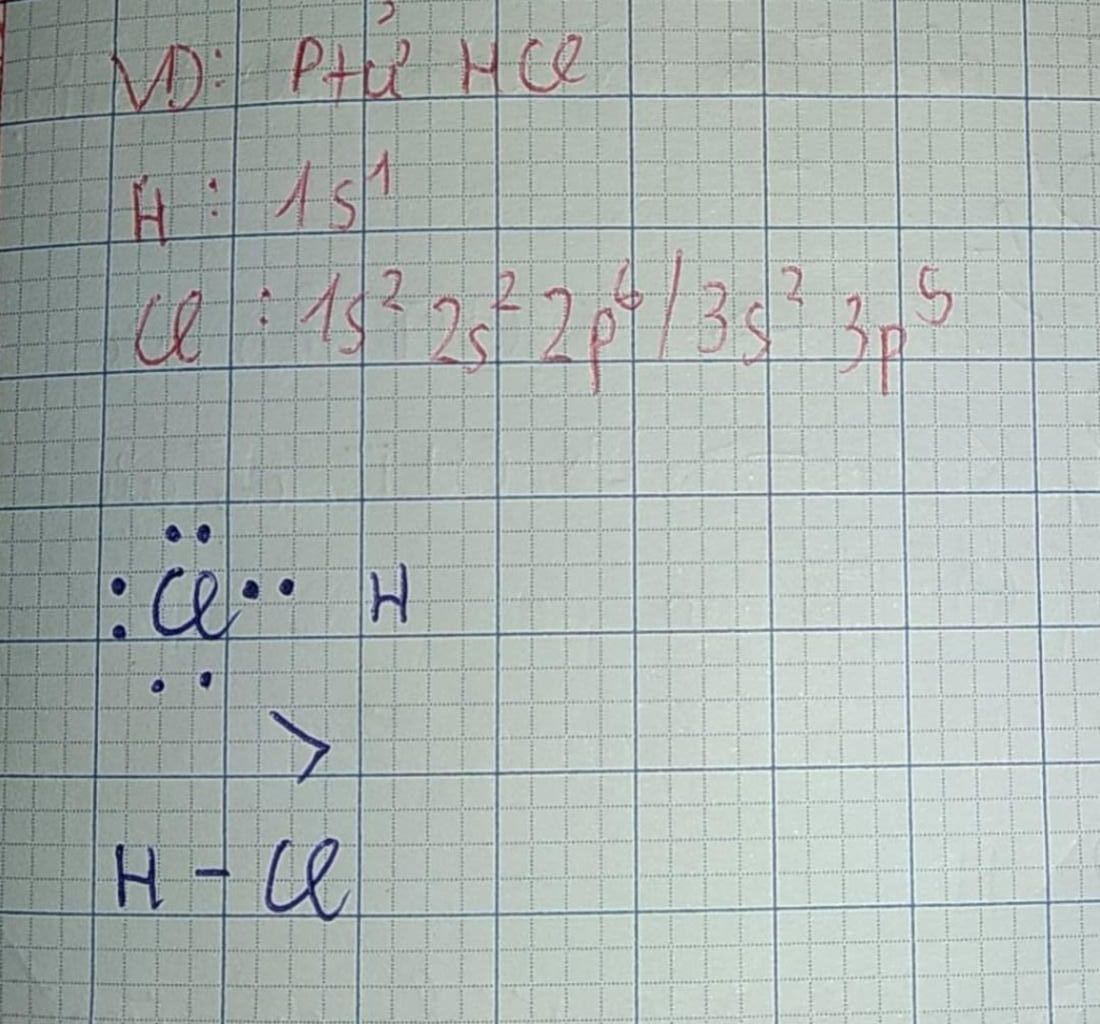 VD: Ptử HCl
H : 1s¹
Cl : 1s² 2s² 2p⁶ / 3s² 3p⁵
••
: Cl •• H
• •
>
H - Cl